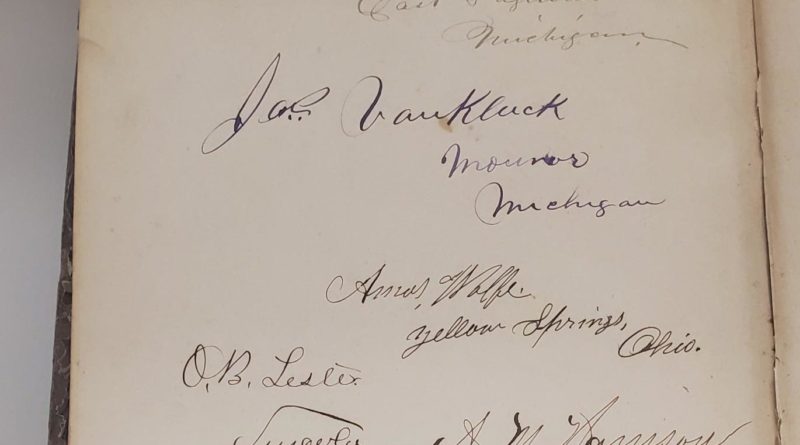 East
Michigan
Jas. VanKluck
Monroe
Michigan
Amos Wolfe.
Yellow Springs,
Ohio.
O. B. Lester